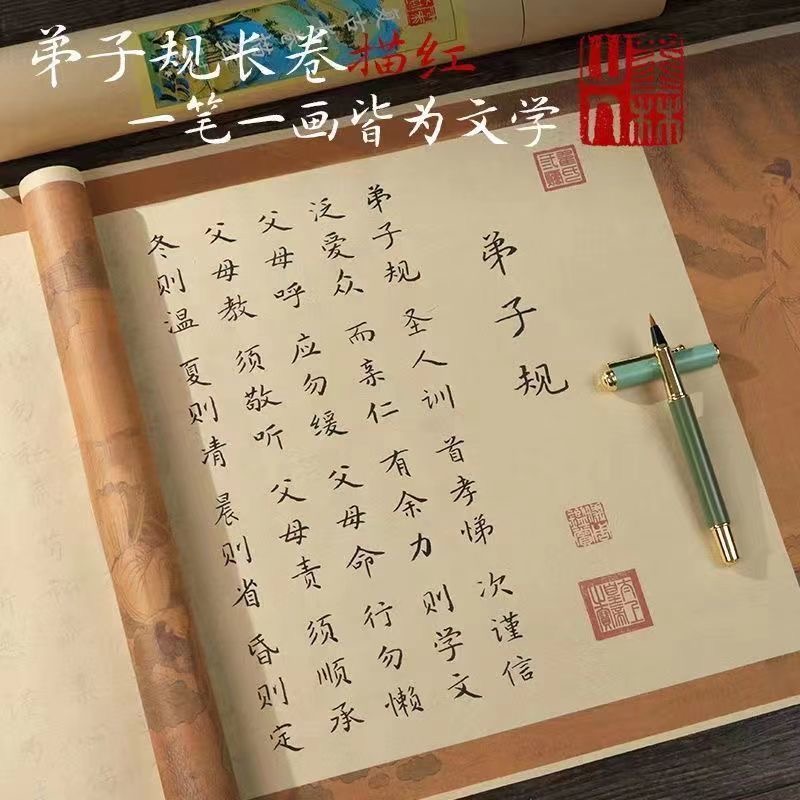 弟子规长卷描红
一笔一画皆为文学
弟子规
弟子规 圣人训 首孝悌 次谨信
泛爱众 而亲仁 有余力 则学文
父母呼 应勿缓 父母命 行勿懒
父母教 须敬听 父母责 须顺承
冬则温 夏则清 晨则省 昏则定